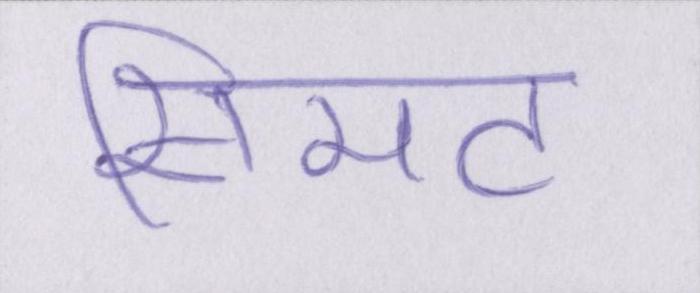 सिमट